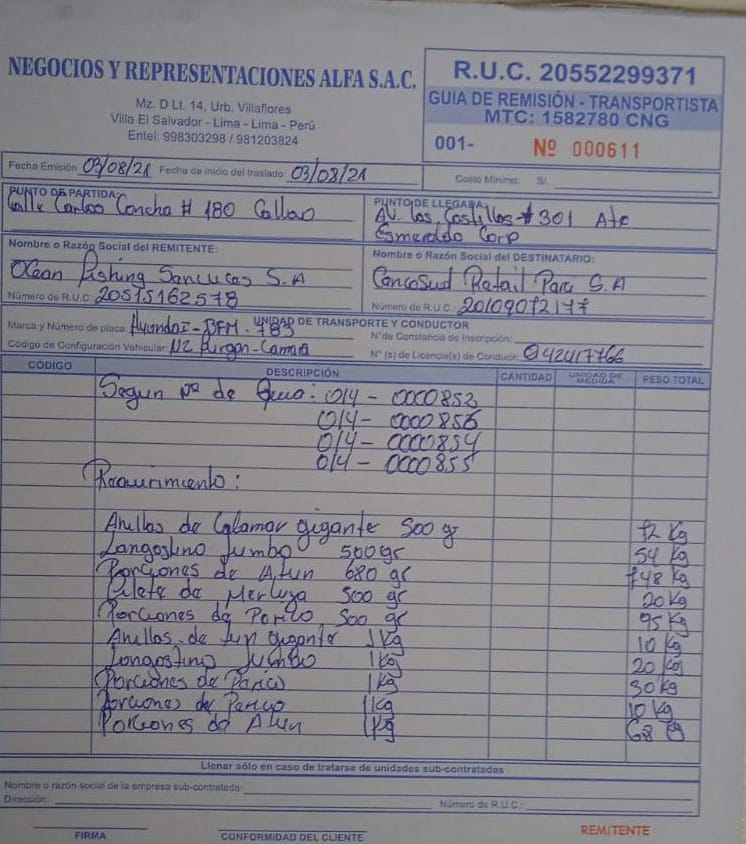 NEGOCIOS Y REPRESENTACIONES ALFA S.A.C.
Mz. D Lt. 14, Urb. Villaflores
Villa El Salvador - Lima - Lima - Perú
Entel: 998303298 / 981203824
R.U.C. 20552299371
GUIA DE REMISIÓN - TRANSPORTISTA
MTC: 1582780 CNG
001- Nº 000611
Fecha Emisión 03/08/21 Fecha de inicio del traslado: 03/08/21
Costo Mínimo: S/
PUNTO DE PARTIDA:
Calle Carlos Concha # 180 Callao
PUNTO DE LLEGADA:
AV. Los Castillos # 301 Ate
Esmeralda Corp
Nombre o Razón Social del REMITENTE:
Ocean Fishing SanLucas S.A
Número de R.U.C. 20515162578
Nombre o Razón Social del DESTINATARIO:
CencoSud Retail Perú S.A
Número de R.U.C.: 20109072177
UNIDAD DE TRANSPORTE Y CONDUCTOR
Marca y Número de placa: Hyundai - BFM - 783
Nº de Constancia de Inscripción:
Código de Configuración Vehicular: N2 Furgon-Camara
Nº (s) de Licencia(s) de Conducir:
CÓDIGO DESCRIPCIÓN CANTIDAD UNIDAD DE MEDIDA PESO TOTAL
Segun Nº de Guia: 014 - 0000852
014 - 0000854
014 - 0000855
Requerimiento:
Anillas de Calamar gigante 500 gr 72 Kg
Langostino Jumbo 500gr 54 Kg
Porciones de Atun 680 gr 748 Kg
Filete de Merluza 500 gr 20Kg
Porciones de Perico 500 gr 95 Kg
Anillas de gigante 1Kg 10 Kg
Langostino Jumbo 1Kg 20 Kg
Porciones de Perico 1Kg 30 Kg
Porciones de 1Kg 10 Kg
Porciones de Atun 1Kg 68 Kg
Llenar sólo en caso de tratarse de unidades sub-contratadas
Nombre o razón social de la empresa sub-contratada:
Dirección: Número de R.U.C.:
FIRMA CONFORMIDAD DEL CLIENTE REMITENTE